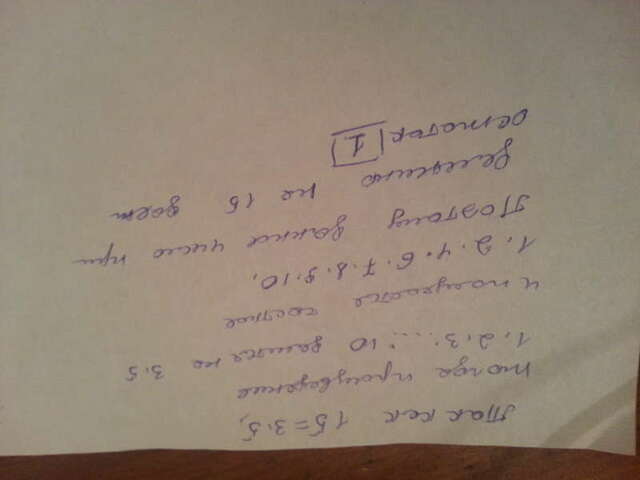 Так как 15=3·5,
тогда произведение
1·2·3·...·10 делится на 3·5
и получается частное
1·2·4·6·7·8·9·10.
Поэтому данное число при
делении на 15 дает
остаток 1